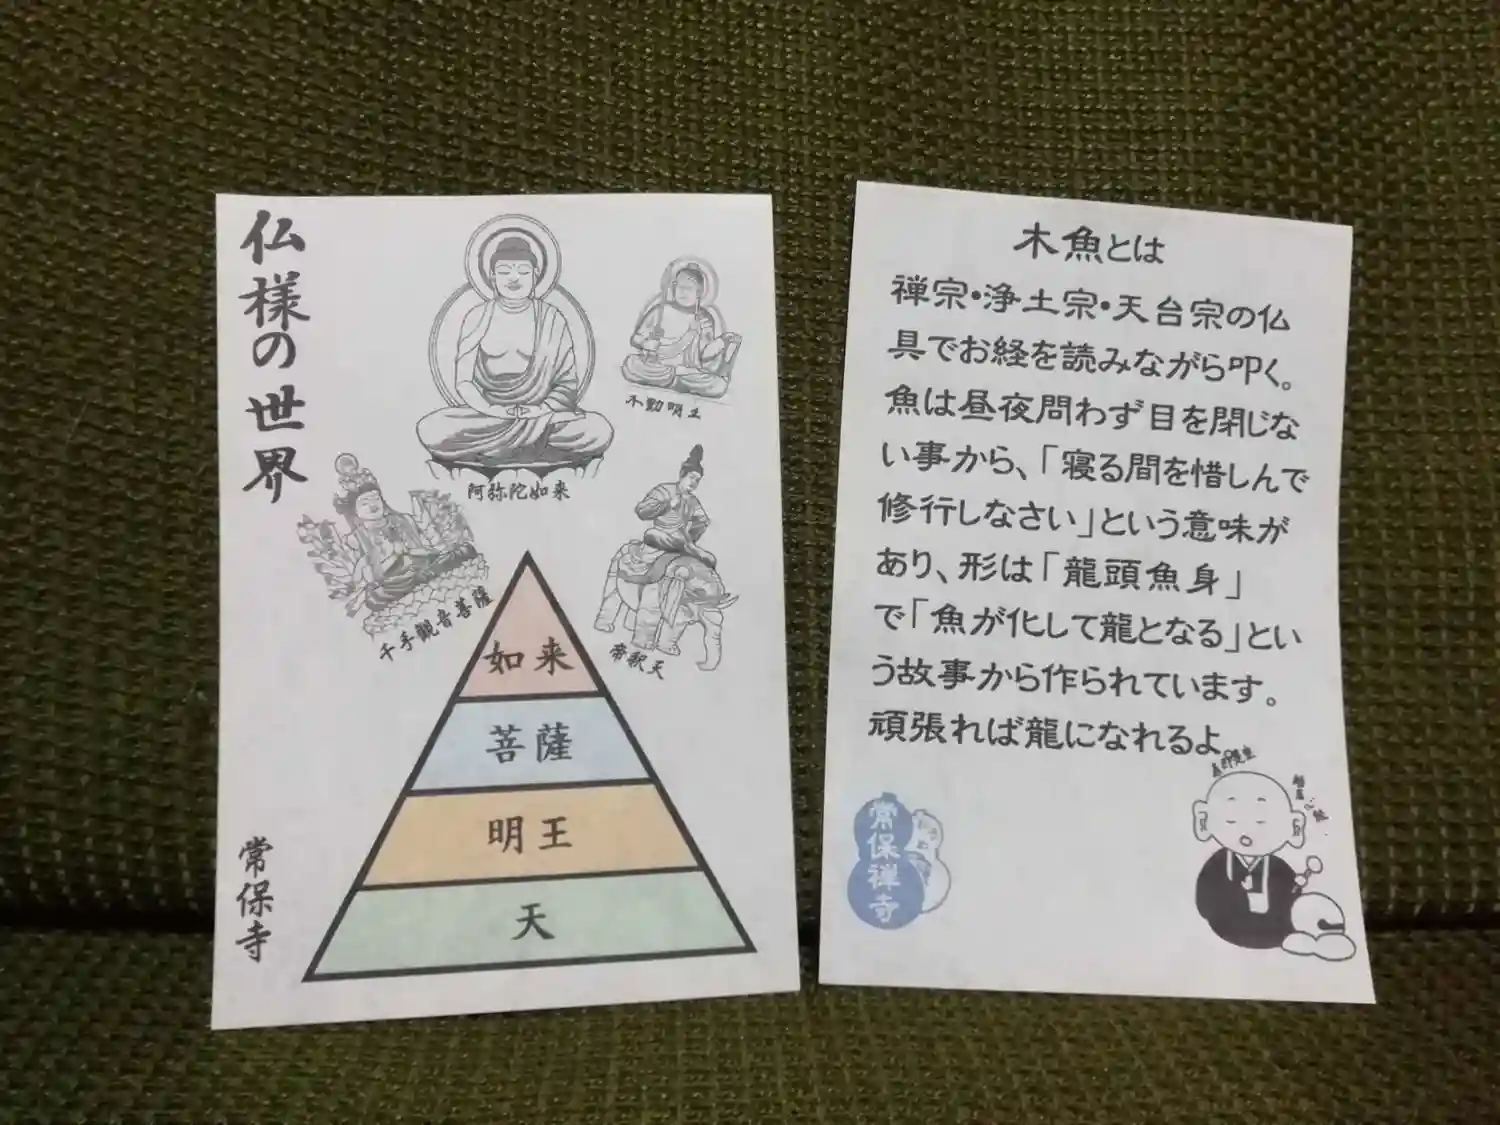 仏様の世界
阿弥陀如来
不動明王
千手観音菩薩
帝釈天
如来
菩薩
明王
天
常保寺
木魚とは
禅宗・浄土宗・天台宗の仏
具でお経を読みながら叩く。
魚は昼夜問わず目を閉じな
い事から、「寝る間を惜しんで
修行しなさい」という意味が
あり、形は「龍頭魚身」
で「魚が化して龍となる」とい
う故事から作られています。
頑張れば龍になれるよ
常保禅寺